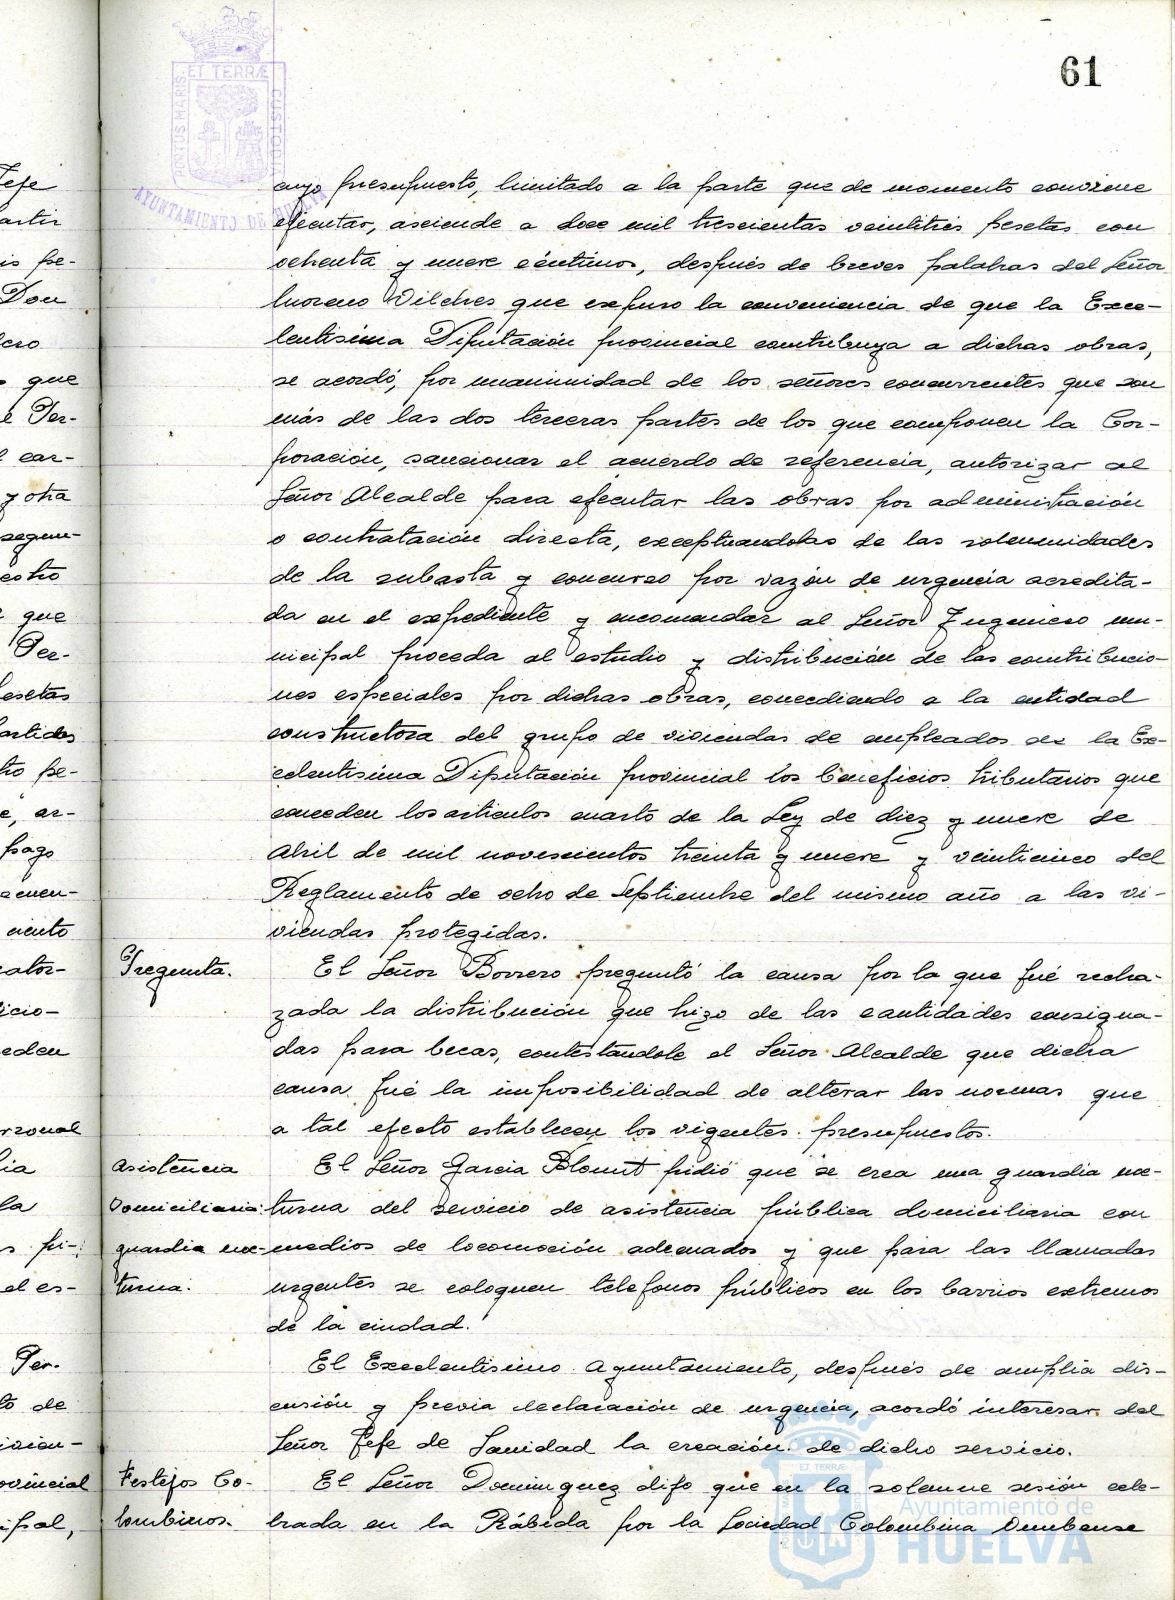 61
PORTUS MARIS ET TERRÆ CUSTODIA
AYUNTAMIENTO DE HUELVA
cuyo presupuesto, limitado a la parte que de momento conviene
ejecutar, asciende a doce mil trescientas veintitres pesetas con
ochenta y nueve céntimos, después de breves palabras del Señor
Moreno Vilches que expuso la conveniencia de que la Exce-
lentísima Diputación provincial contribuya a dichas obras,
se acordó, por unanimidad de los señores concurrentes que son
más de las dos terceras partes de los que componen la Cor-
poración, sancionar el acuerdo de referencia, autorizar al
Señor Alcalde para ejecutar las obras por administración
o contratación directa, exceptuandolas de las solemnidades
de la subasta y concurso por razón de urgencia acredita-
da en el expediente y encomendar al Señor Ingeniero mu-
nicipal proceda al estudio y distribución de las contribucio-
nes especiales por dichas obras, concediendo a la entidad
constructora del grupo de viviendas de empleados de la Ex-
celentísima Diputación provincial los beneficios tributarios que
conceden los articulos cuarto de la Ley de diez y nueve de
Abril de mil novescientos treinta y nueve y veinticinco del
Reglamento de ocho de Septiembre del mismo año a las vi-
viendas protegidas.
Pregunta.
El Señor Borrero preguntó la causa por la que fué recha-
zada la distribución que hizo de las cantidades consigna-
das para becas, contestandole el Señor Alcalde que dicha
causa fué la imposibilidad de alterar las normas que
a tal efecto establecen los vigentes presupuestos.
Asistencia
Domiciliaria:
guardia noc-
turna.
El Señor Garcia Blount pidió que se crea una guardia noc-
turna del servicio de asistencia pública domiciliaria con
medios de locomoción adecuados y que para las llamadas
urgentes se coloquen teléfonos públicos en los barrios extremos
de la ciudad.
El Excelentísimo Ayuntamiento, después de amplia dis-
cusión y previa declaración de urgencia, acordó interesar del
Señor Jefe de Sanidad la creación de dicho servicio.
Festejos Co-
lombinos.
El Señor Dominguez dijo que en la solemne sesión cele-
brada en la Rábida por la Sociedad Colombina Onubense
Ayuntamiento de
HUELVA